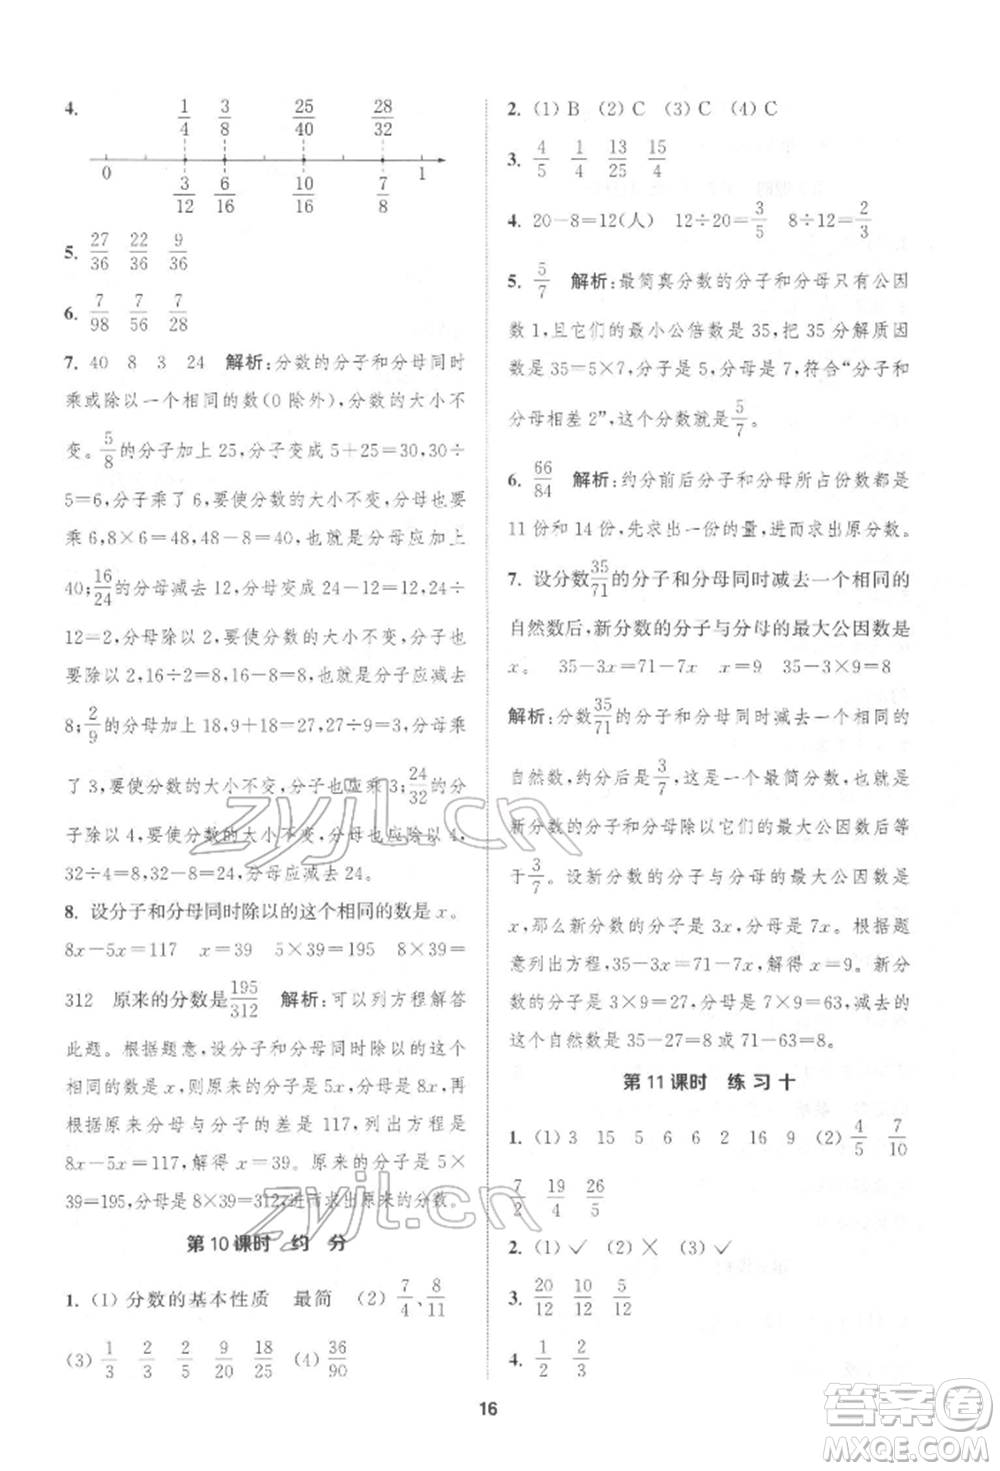 4. 1/4 3/8 25/40 28/32
0 1
3/12 6/16 10/16 7/8
5. 27/36 22/36 9/36
6. 7/98 7/56 7/28
7. 40 8 3 24 解析:分数的分子和分母同时
乘或除以一个相同的数(0 除外),分数的大小不
变。5/8的分子加上 25,分子变成 5+25=30,30÷
5=6,分子乘了 6,要使分数的大小不变,分母也要
乘 6,8×6=48,48-8=40,也就是说,分母应加上
40;16/24的分母减去 12,分母变成 24-12=12,24÷
12=2,分母除以 2,要使分数的大小不变,分子也
要除以 2,16÷2=8,16-8=8,也就是分子应减去
8;2/9的分母加上 18,9+18=27,27÷9=3,分母乘
了 3,要使分数的大小不变,分子也应乘 3;24/32的分
子除以 4,要使分数的大小不变,分母也应除以 4,
32÷4=8,32-8=24,分母应减去 24。
8. 设分子和分母同时除以的这个相同的数是 x。
8x-5x=117 x=39 5×39=195 8×39=
312 原来的分数是195/312 解析:可以列方程解答
此题。根据题意,设分子和分母同时除以的这个
相同的数是 x,则原来的分子是 5x,分母是 8x,根
据原来分母与分子的差是 117,列出方程
8x-5x=117,解得 x=39。原来的分子是 5×
39=195,分母是 8×39=312,进而求出原来的分数。
第 10 课时 约 分
1. (1) 分数的基本性质 最简 (2) 7/4、8/11
(3) 1/3 2/3 2/5 9/20 18/25 (4) 36/90
2. (1) B (2) C (3) C (4) C
3. 4/5 1/4 13/25 15/4
4. 20-8=12(人) 12÷20=3/5 8÷12=2/3
5. 5/7 解析:最简真分数的分子和分母只有公因
数 1,且它们的最小公倍数是 35,把 35 分解质因
数是 35=5×7,分子是 5,分母是 7,符合“分子和
分母相差 2”,这个分数就是5/7。
6. 66/84 解析:约分后分子和分母所占份数都是
11 份和 14 份,先求出一份的量,进而求出原分数。
7. 设分数35/71的分子和分母同时减去一个相同的
自然数后,新分数的分子与分母的最大公因数是
x。 35-3x=71-7x x=9 35-3×9=8
解析:分数35/71的分子和分母同时减去一个相同的
自然数,约分后是3/7,是一个最简分数,所以
新分数的分子和分母除以它们的最大公因数后等
于3/7。设新分数的分子与分母的最大公因数是
x,那么新分数的分子是 3x,分母是 7x。根据题
意列出方程,35-3x=71-7x,解得 x=9。新分
数的分子是 3×9=27,分母是 7×9=63,所以减去的
这个自然数是 35-27=8 或 71-63=8。
第 11 课时 练 习 十
1. (1) 3 15 5 6 6 2 16 9 (2) 4/5 7/10
7/2 19/4 26/5
2. (1) ✓ (2) ✕ (3) ✓
3. 20/12 10/12 5/12
4. 1/2 2/3
16
zyjl.cn
zyjl.cn
答案圈
MXQE.COM